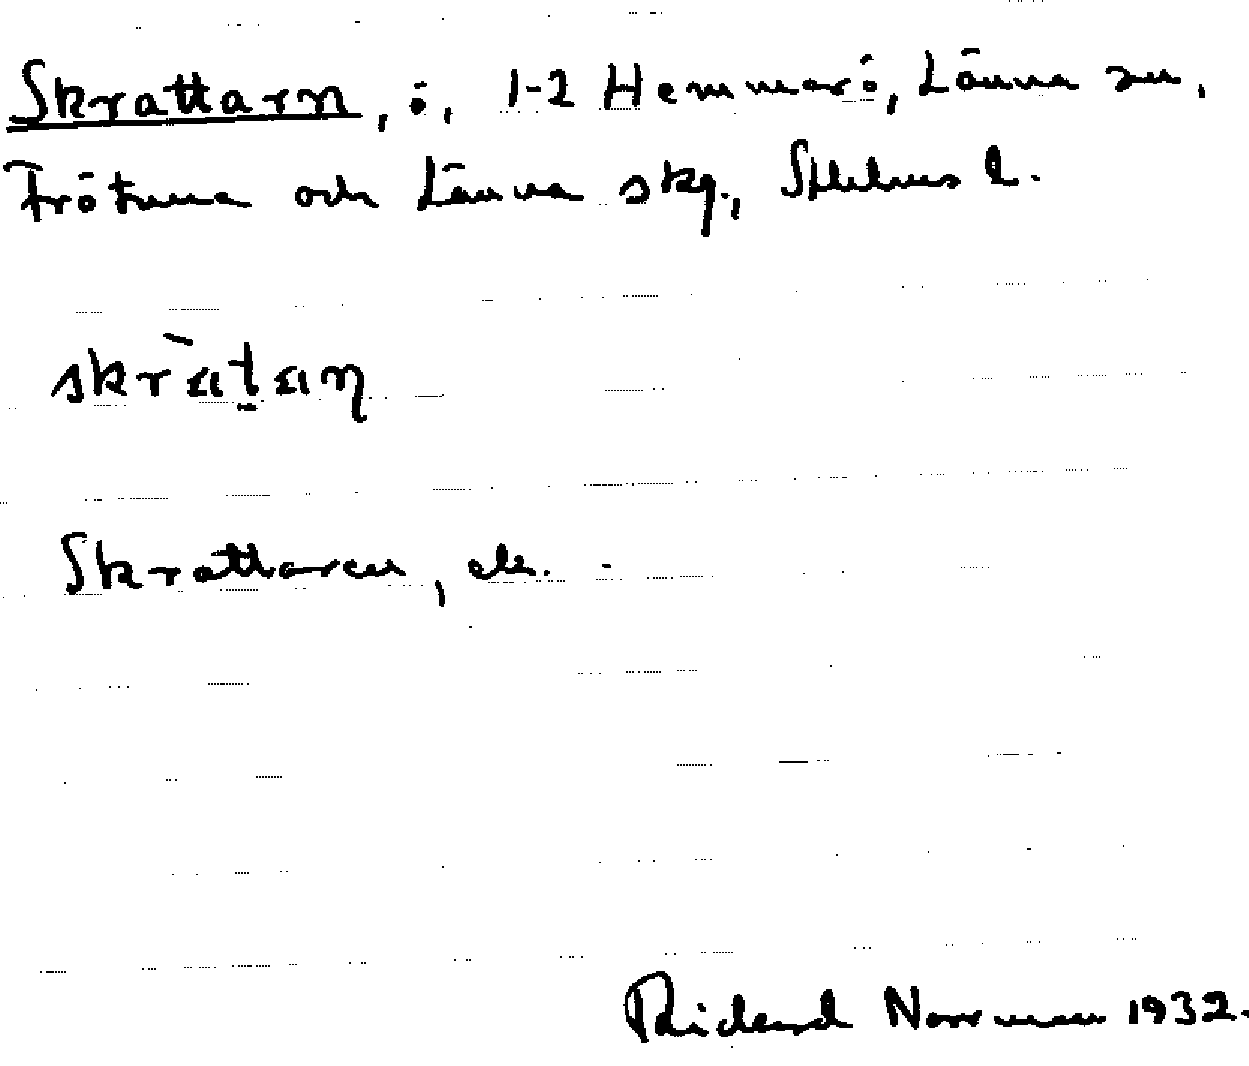 Skrattarn, ö, 1-2 Hemmarö, Länna sn,
Frötuna och Länna skg., Sthlms l.
skràt̠an
Skrattaren, ek.
Rickard Norrman 1932.